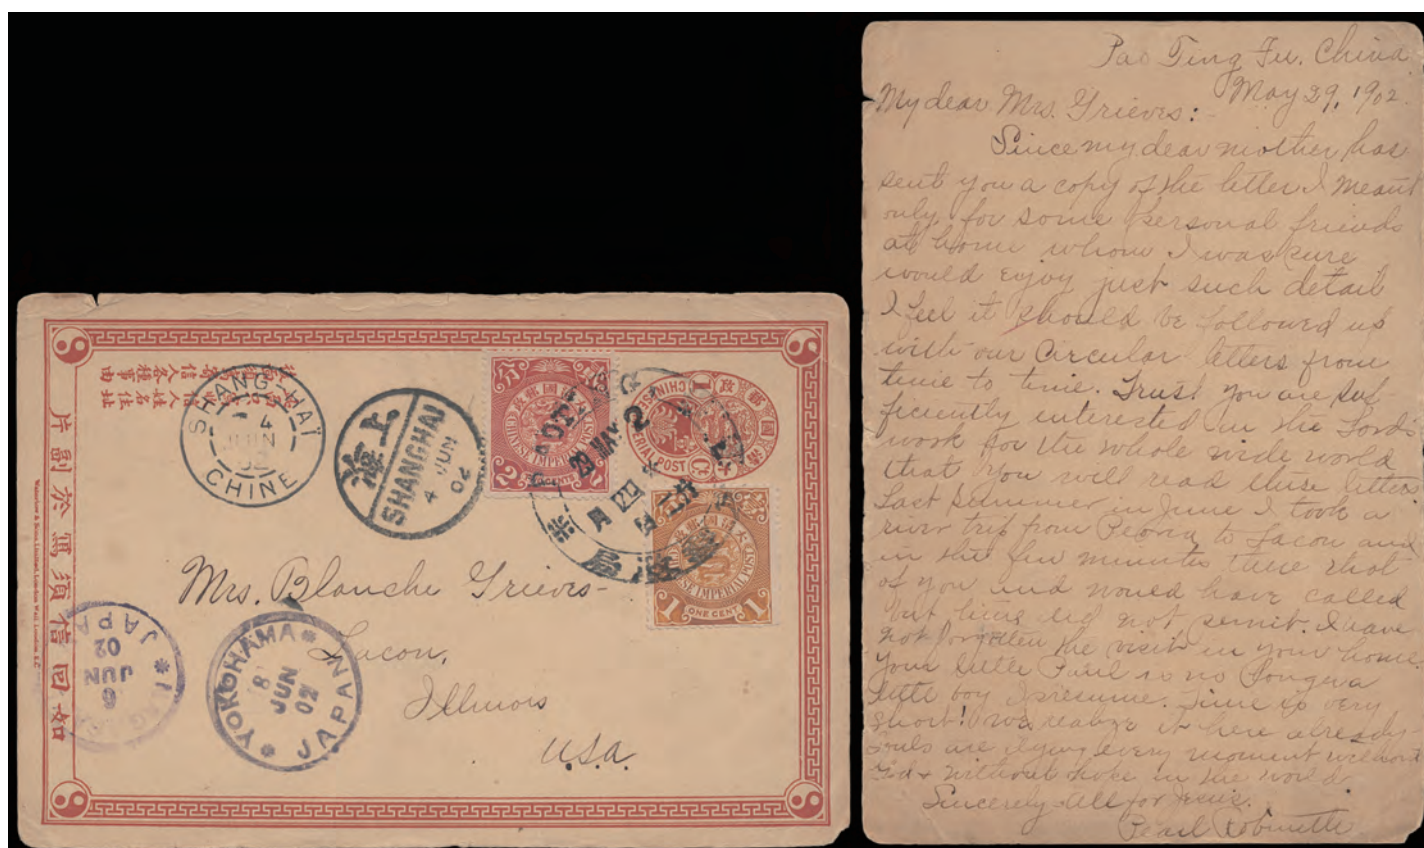 SHANG-HAÏ
4
JUIN
CHINE
上海
SHANGHAI
4 JUN 02
PAOTING
29 MAY 2
CHINESE IMPERIAL POST
2 CENTS 2
CHINESE IMPERIAL POST
1 ONE CENT 1
Mrs. Blanche Grieves-
Lacon,
Illinois
U.S.a.
YOKOHAMA
8
JUN
02
JAPAN
6
JUN
02
JAPA
如回信須寫本副片
Waterlow & Sons Limited, London Wall, London E.C.
Pao Ting Fu. China
May 29, 1902.
My dear Mrs. Grieves:-
Since my dear mother has
sent you a copy of the letter I meant
only for some personal friends
at home whom I was sure
would enjoy just such detail
I feel it should be followed up
with our Circular letters from
time to time. Trust you are suf-
ficiently interested in the Lord's
work for the whole wide world
that you will read these letters.
Last summer in June I took a
river trip from Peoria to Lacon and
in the few minutes there
of you and would have called
but time did not permit. I have
not forgotten the visit in your home.
Your little Paul is no longer a
little boy I presume. Time is very
short! We realize it here already-
souls are dying every moment without
God & without hope in the world.
Sincerely all for Jesus.
Pearl